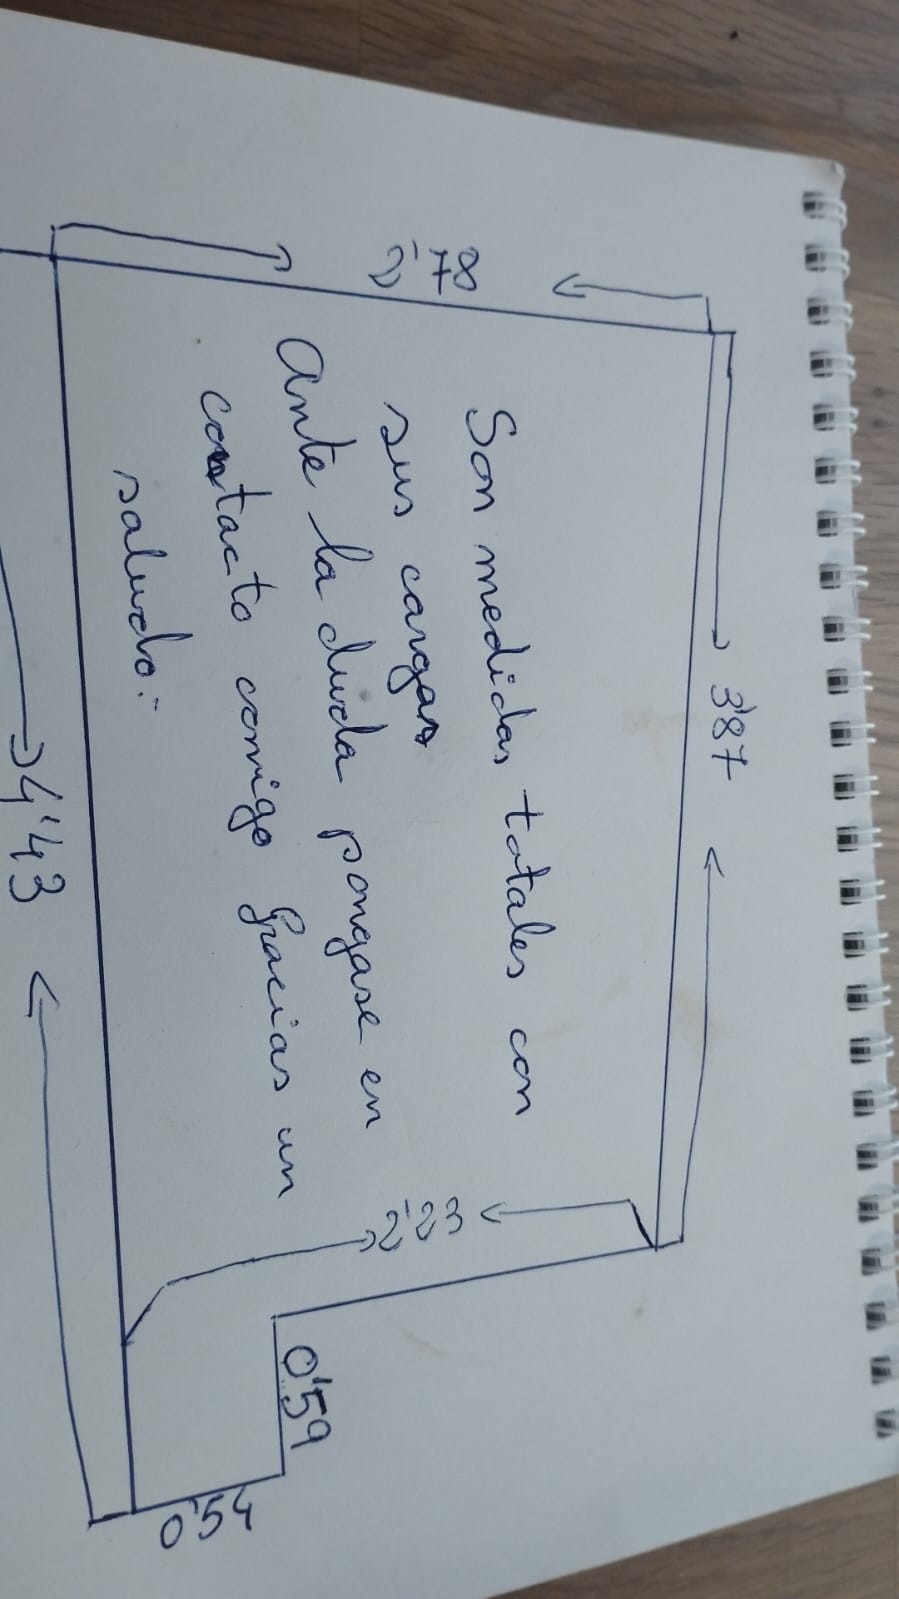 3'87
2'78
Son medidas totales con
sus cargas
Ante la duda pongase en
contacto conmigo Gracias un
saludo.-
2'23
0'59
0'54
4'43